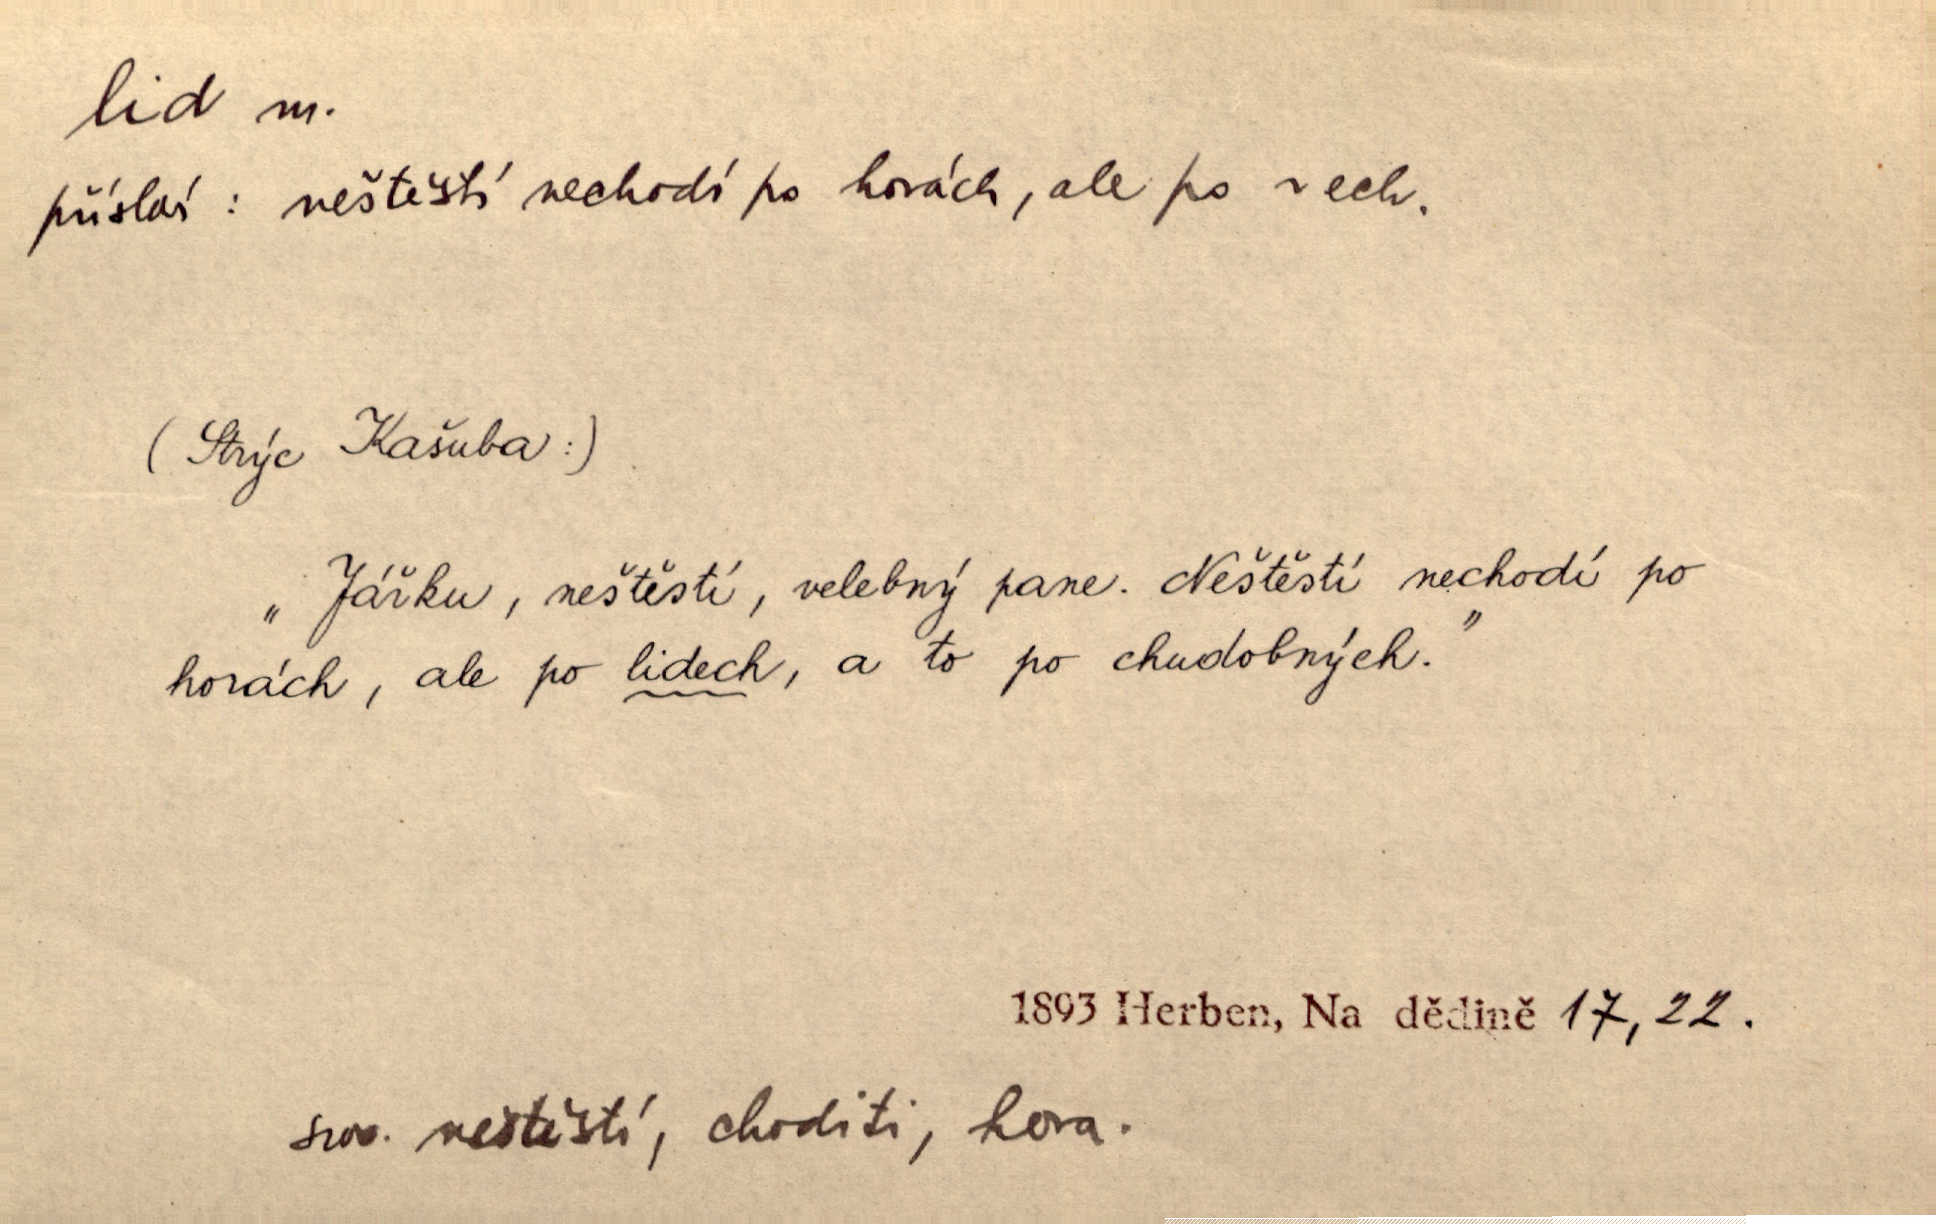 lid m.
přísloví : neštěstí nechodí po horách, ale po ~ ech.
( Strýc Kašuba :)
„ Jářku, neštěstí, velebný pane. Neštěstí nechodí po
horách, ale po lidech, a to po chudobných.”
1893 Herben, Na dědině 17, 22.
srov. neštěstí, choditi, hora.